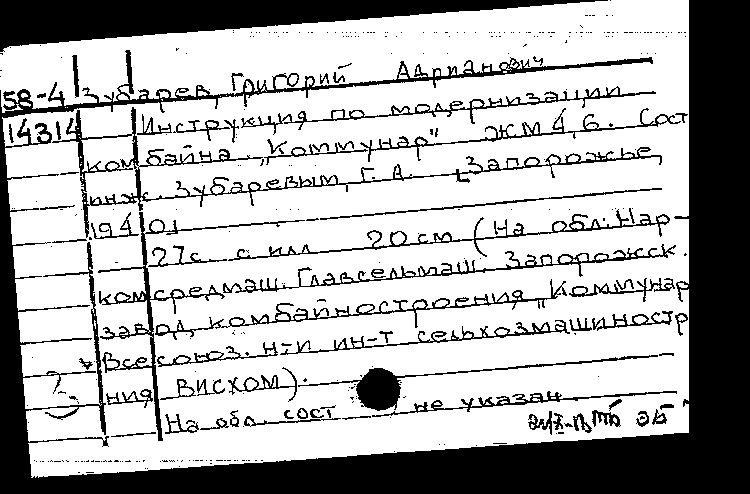 58-4 Зубарев, Григорий Адрианович
14314 Инструкция по модернизации
комбайна "Коммунар" ЖМ 4,6. Сост
инж. Зубаревым, Г. А. [Запорожье,
1940]
27с. с илл 20см (На обл: Нар-
комсредмаш. Главсельмаш. Запорожск.
завод комбайностроения "Коммунар
Всесоюз. н-и ин-т сельхозмашиностр
2. ния ВИСХОМ).
На обл. сост не указан.
ЭБ